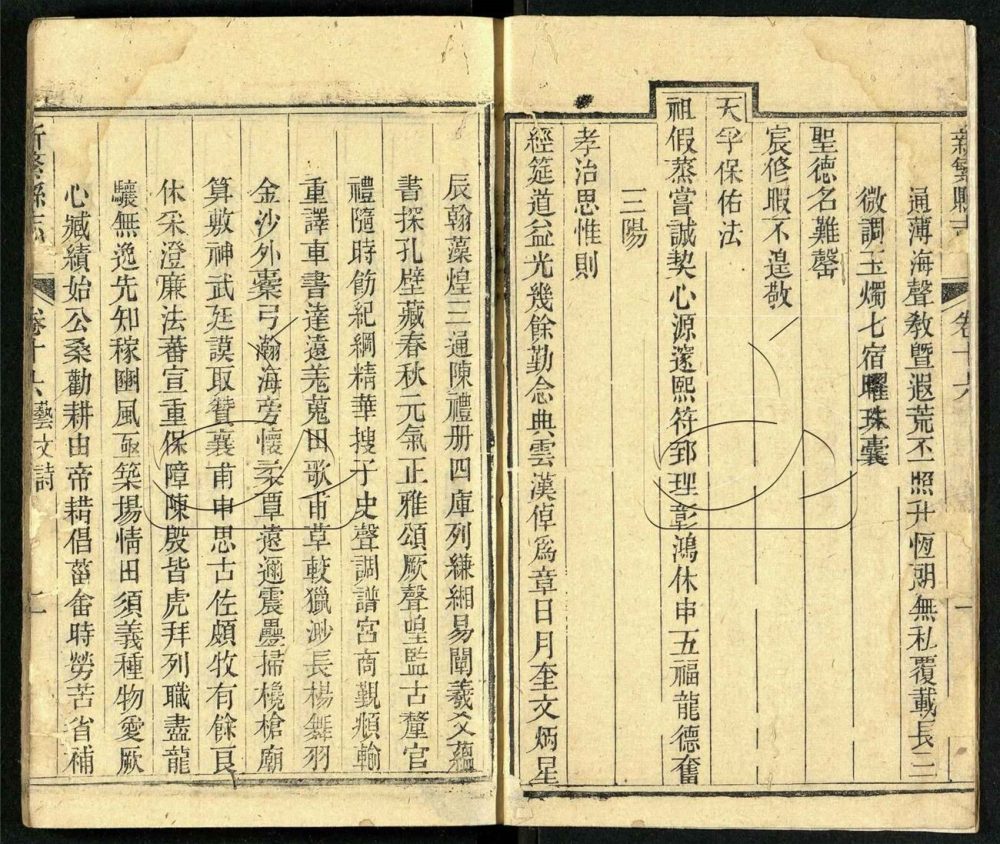 新繁縣志 卷十六 一
通薄海聲敎曁遐荒丕照升恆朗無私覆載長三
微調玉燭七宿曜珠囊
聖德名難罄
宸修暇不遑敬
天孚保佑法
祖假蒸嘗誠契心源邃熙符郅理彰鴻休申五福龍德奮
三陽
孝治思惟則
經筵道益光幾餘勤念典雲漢倬爲章日月奎文炳星
辰翰藻煌三通陳禮册四庫列縑緗易闡羲爻蘊
書探孔壁藏春秋元氣正雅頌厥聲喤監古釐官
禮隨時飭紀綱精華搜子史聲調譜宮商覲頫輸
重譯車書達遠羌蒐田歌甫草較獵渺長楊舞羽
金沙外櫜弓瀚海旁懷柔覃遠邇震疊掃欃槍廟
算敷神武廷謨取贊襄甫申思古佐頗牧有餘良
休采澄廉法蕃宣重保障陳殷皆虎拜列職盡龍
驤無逸先知稼豳風亟築場情田須義種物愛厥
心臧績始公桑勸耕由帝耤倡菑畬時勞苦省補
新繁縣志 卷十六 藝文詩 二